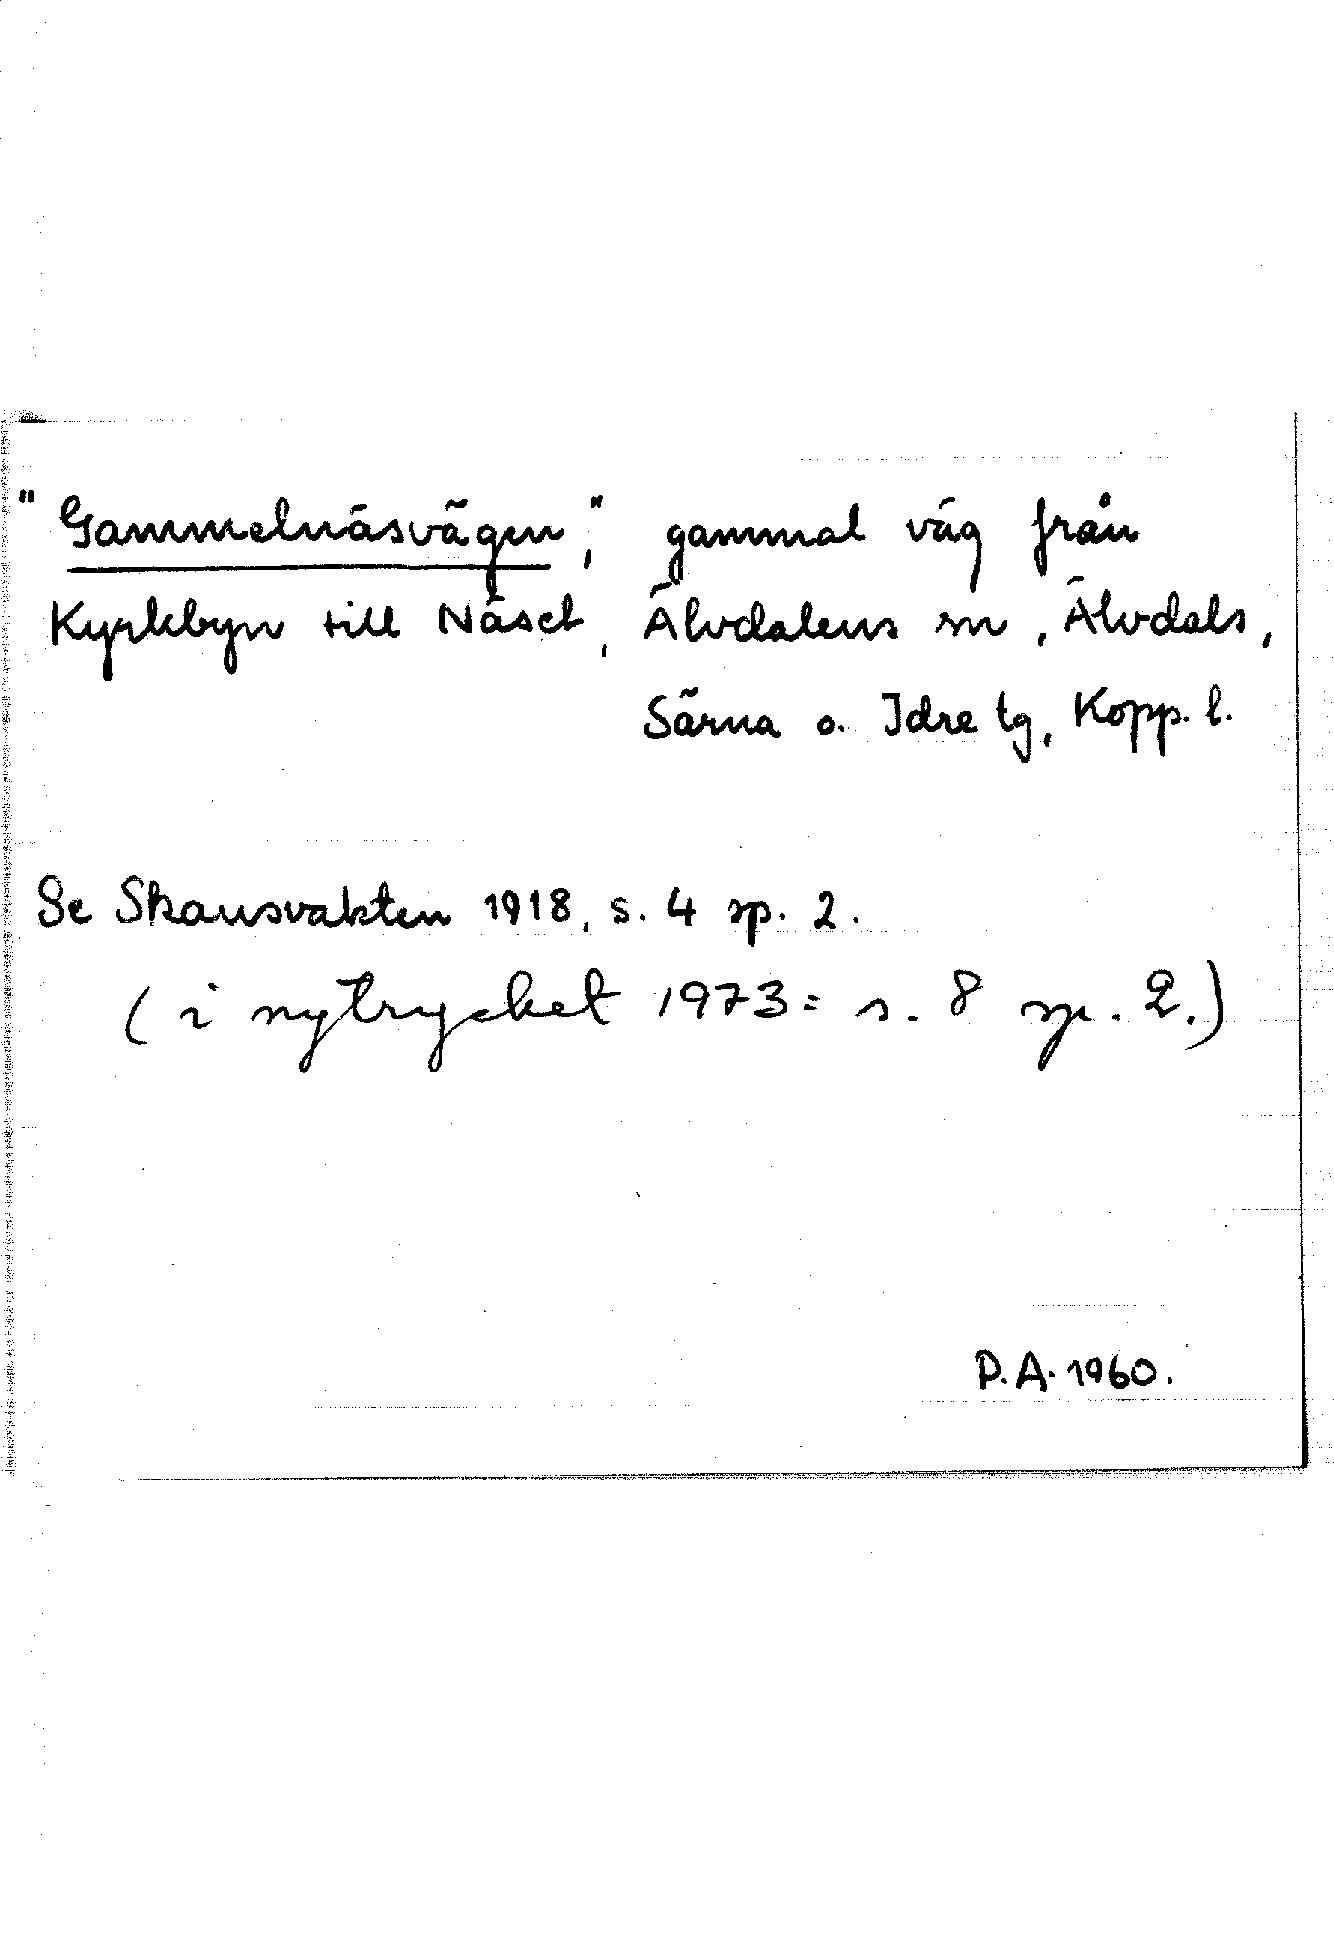 "Gammelnäsvägen", gammal väg från
Kyrkbyn till Näset, Älvdalens sn, Älvdals,
Särna o. Idre tg, Kopp. l.
Se Skansvakten 1918, s. 4 sp. 2.
(i nytrycket 1973 = s. 8 sp. 2.)
P.A. 1960.